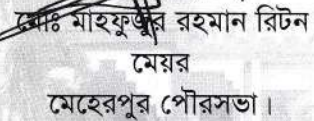 মোঃ মাহফুজুর রহমান রিটন
মেয়র
মেহেরপুর পৌরসভা।